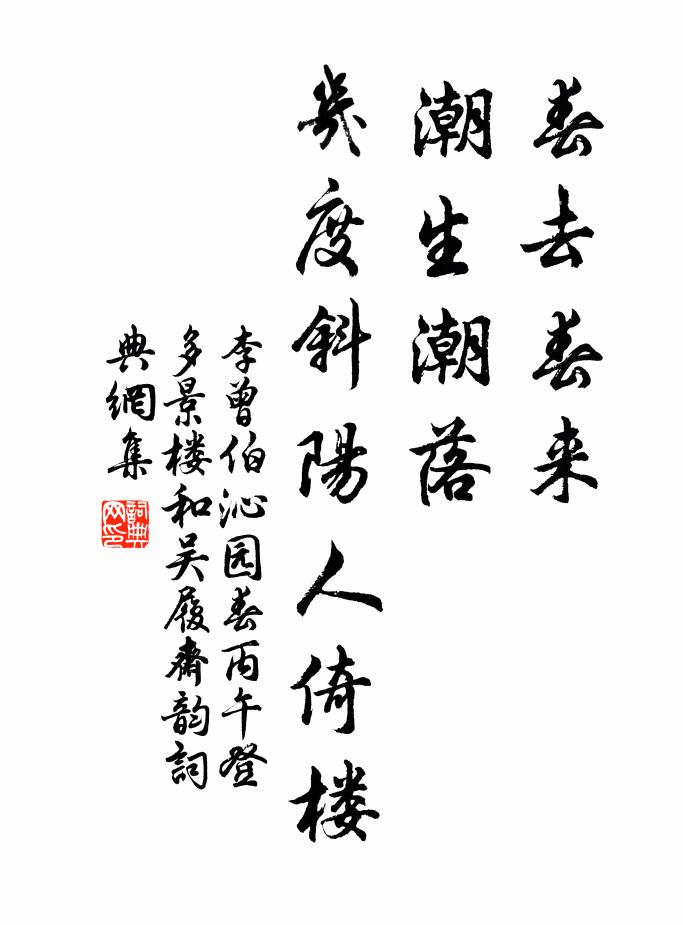 春去春来
潮生潮落
幾度斜陽人倚楼
李曾伯沁园春丙午登
多景楼和吴履齋韵詞
典網集
詞典
网印